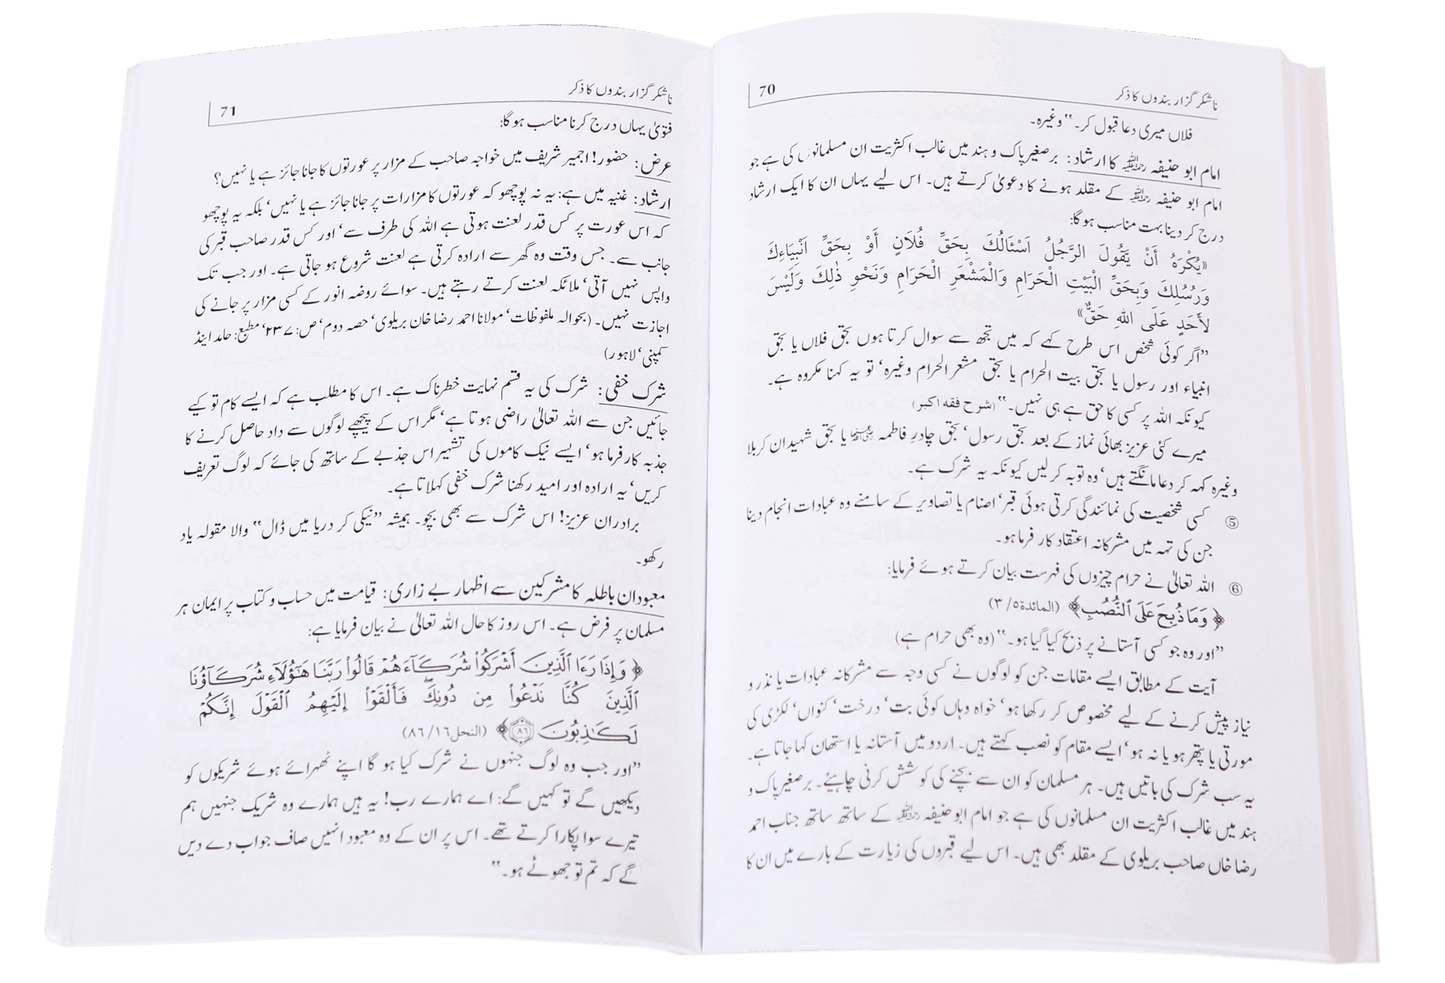 ناشکر گزار بندوں کا ذکر
70
فلاں میری دعا قبول کر۔“ وغیرہ۔
امام ابو حنیفہ رحمۃ اللہ علیہ کا ارشاد: برصغیر پاک و ہند میں غالب اکثریت ان مسلمانوں کی ہے جو
امام ابو حنیفہ رحمۃ اللہ علیہ کے مقلد ہونے کا دعویٰ کرتے ہیں۔ اس لیے یہاں ان کا ایک ارشاد
درج کر دینا بہت مناسب ہو گا:
«يُكْرَهُ أَنْ يَّقُولَ الرَّجُلُ اَسْئَالُكَ بِحَقِّ فُلَانٍ أَوْ بِحَقِّ اَنْبِيَاءِكَ
وَرُسُلِكَ وَبِحَقِّ الْبَيْتِ الْحَرَامِ وَالْمَشْعَرِ الْحَرَامِ وَنَحْوِ ذٰلِكَ وَلَيْسَ
لِأَحَدٍ عَلَى اللهِ حَقٌّ»
”اگر کوئی شخص اس طرح کہے کہ میں تجھ سے سوال کرتا ہوں بحق فلاں یا بحق
انبیاء اور رسول یا بحق بیت الحرام یا بحق مشعر الحرام وغیرہ‘ تو یہ کہنا مکروہ ہے۔
کیونکہ اللہ پر کسی کا حق ہے ہی نہیں۔“ (شرح فقہ اکبر)
میرے کئی عزیز بھائی نماز کے بعد بحق رسول‘ بحق چادرِ فاطمہ رضی اللہ عنہا یا بحق شہیدان کربلا
وغیرہ کہہ کر دعا مانگتے ہیں‘ وہ توبہ کر لیں کیونکہ یہ شرک ہے۔
⑤ کسی شخصیت کی نمائندگی کرتی ہوئی قبر‘ اصنام یا تصاویر کے سامنے وہ عبادات انجام دینا
جن کی تہہ میں مشرکانہ اعتقاد کار فرما ہو۔
⑥ اللہ تعالیٰ نے حرام چیزوں کی فہرست بیان کرتے ہوئے فرمایا:
﴿ وَمَا ذُبِحَ عَلَى ٱلنُّصُبِ﴾ (المائدة ۵/ ۳)
”اور وہ جو کسی آستانے پر ذبح کیا گیا ہو۔“ (وہ بھی حرام ہے)
آیت کے مطابق ایسے مقامات جن کو لوگوں نے کسی وجہ سے مشرکانہ عبادات یا نذر و
نیاز پیش کرنے کے لیے مخصوص کر رکھا ہو‘ خواہ وہاں کوئی بت‘ درخت‘ کنواں‘ لکڑی کی
مورتی یا پتھر ہو یا نہ ہو‘ ایسے مقام کو نصب کہتے ہیں۔ اردو میں آستانہ یا استھان کہا جاتا ہے۔
یہ سب شرک کی باتیں ہیں۔ ہر مسلمان کو ان سے بچنے کی کوشش کرنی چاہیئے۔ برصغیر پاک و
ہند میں غالب اکثریت ان مسلمانوں کی ہے جو امام ابو حنیفہ رحمۃ اللہ علیہ کے ساتھ ساتھ جناب احمد
رضا خاں صاحب بریلوی کے مقلد بھی ہیں۔ اس لیے قبروں کی زیارت کے بارے میں ان کا
ناشکر گزار بندوں کا ذکر
71
فتویٰ یہاں درج کرنا مناسب ہو گا:
عرض: حضور! اجمیر شریف میں خواجہ صاحب کے مزار پر عورتوں کا جانا جائز ہے یا نہیں؟
ارشاد: غنیہ میں ہے: یہ نہ پوچھو کہ عورتوں کا مزارات پر جانا جائز ہے یا نہیں‘ بلکہ یہ پوچھو
کہ اس عورت پر کس قدر لعنت ہوتی ہے اللہ کی طرف سے‘ اور کس قدر صاحب قبر کی
جانب سے۔ جس وقت وہ گھر سے ارادہ کرتی ہے لعنت شروع ہو جاتی ہے۔ اور جب تک
واپس نہیں آتی‘ ملائکہ لعنت کرتے رہتے ہیں۔ سوائے روضہ انور کے کسی مزار پر جانے کی
اجازت نہیں۔ (بحوالہ ملفوظات‘ مولانا احمد رضا خان بریلوی‘ حصہ دوم‘ ص: ۲۳۷‘ مطبع: حامد اینڈ
کمپنی‘ لاہور)
شرک خفی: شرک کی یہ قسم نہایت خطرناک ہے۔ اس کا مطلب ہے کہ ایسے کام تو کیے
جائیں جن سے اللہ تعالیٰ راضی ہوتا ہے‘ مگر اس کے پیچھے لوگوں سے داد حاصل کرنے کا
جذبہ کار فرما ہو‘ ایسے نیک کاموں کی تشہیر اس جذبے کے ساتھ کی جائے کہ لوگ تعریف
کریں‘ یہ ارادہ اور امید رکھنا شرک خفی کہلاتا ہے۔
برادران عزیز! اس شرک سے بھی بچو۔ ہمیشہ ”نیکی کر دریا میں ڈال“ والا مقولہ یاد
رکھو۔
معبودان باطلہ کا مشرکین سے اظہار بے زاری: قیامت میں حساب و کتاب پر ایمان ہر
مسلمان پر فرض ہے۔ اس روز کا حال اللہ تعالیٰ نے بیان فرمایا ہے:
﴿ وَإِذَا رَءَا ٱلَّذِينَ أَشْرَكُوا۟ شُرَكَآءَهُمْ قَالُوا۟ رَبَّنَا هَٰٓؤُلَآءِ شُرَكَآؤُنَا
ٱلَّذِينَ كُنَّا نَدْعُوا۟ مِن دُونِكَ ۖ فَأَلْقَوْا۟ إِلَيْهِمُ ٱلْقَوْلَ إِنَّكُمْ
لَكَٰذِبُونَ ۝٨٦﴾ (النحل ۱۶/ ۸۶)
”اور جب وہ لوگ جنہوں نے شرک کیا ہو گا اپنے ٹھہرائے ہوئے شریکوں کو
دیکھیں گے تو کہیں گے: اے ہمارے رب! یہ ہیں ہمارے وہ شریک جنہیں ہم
تیرے سوا پکارا کرتے تھے۔ اس پر ان کے وہ معبود انہیں صاف جواب دے دیں
گے کہ تم تو جھوٹے ہو۔“